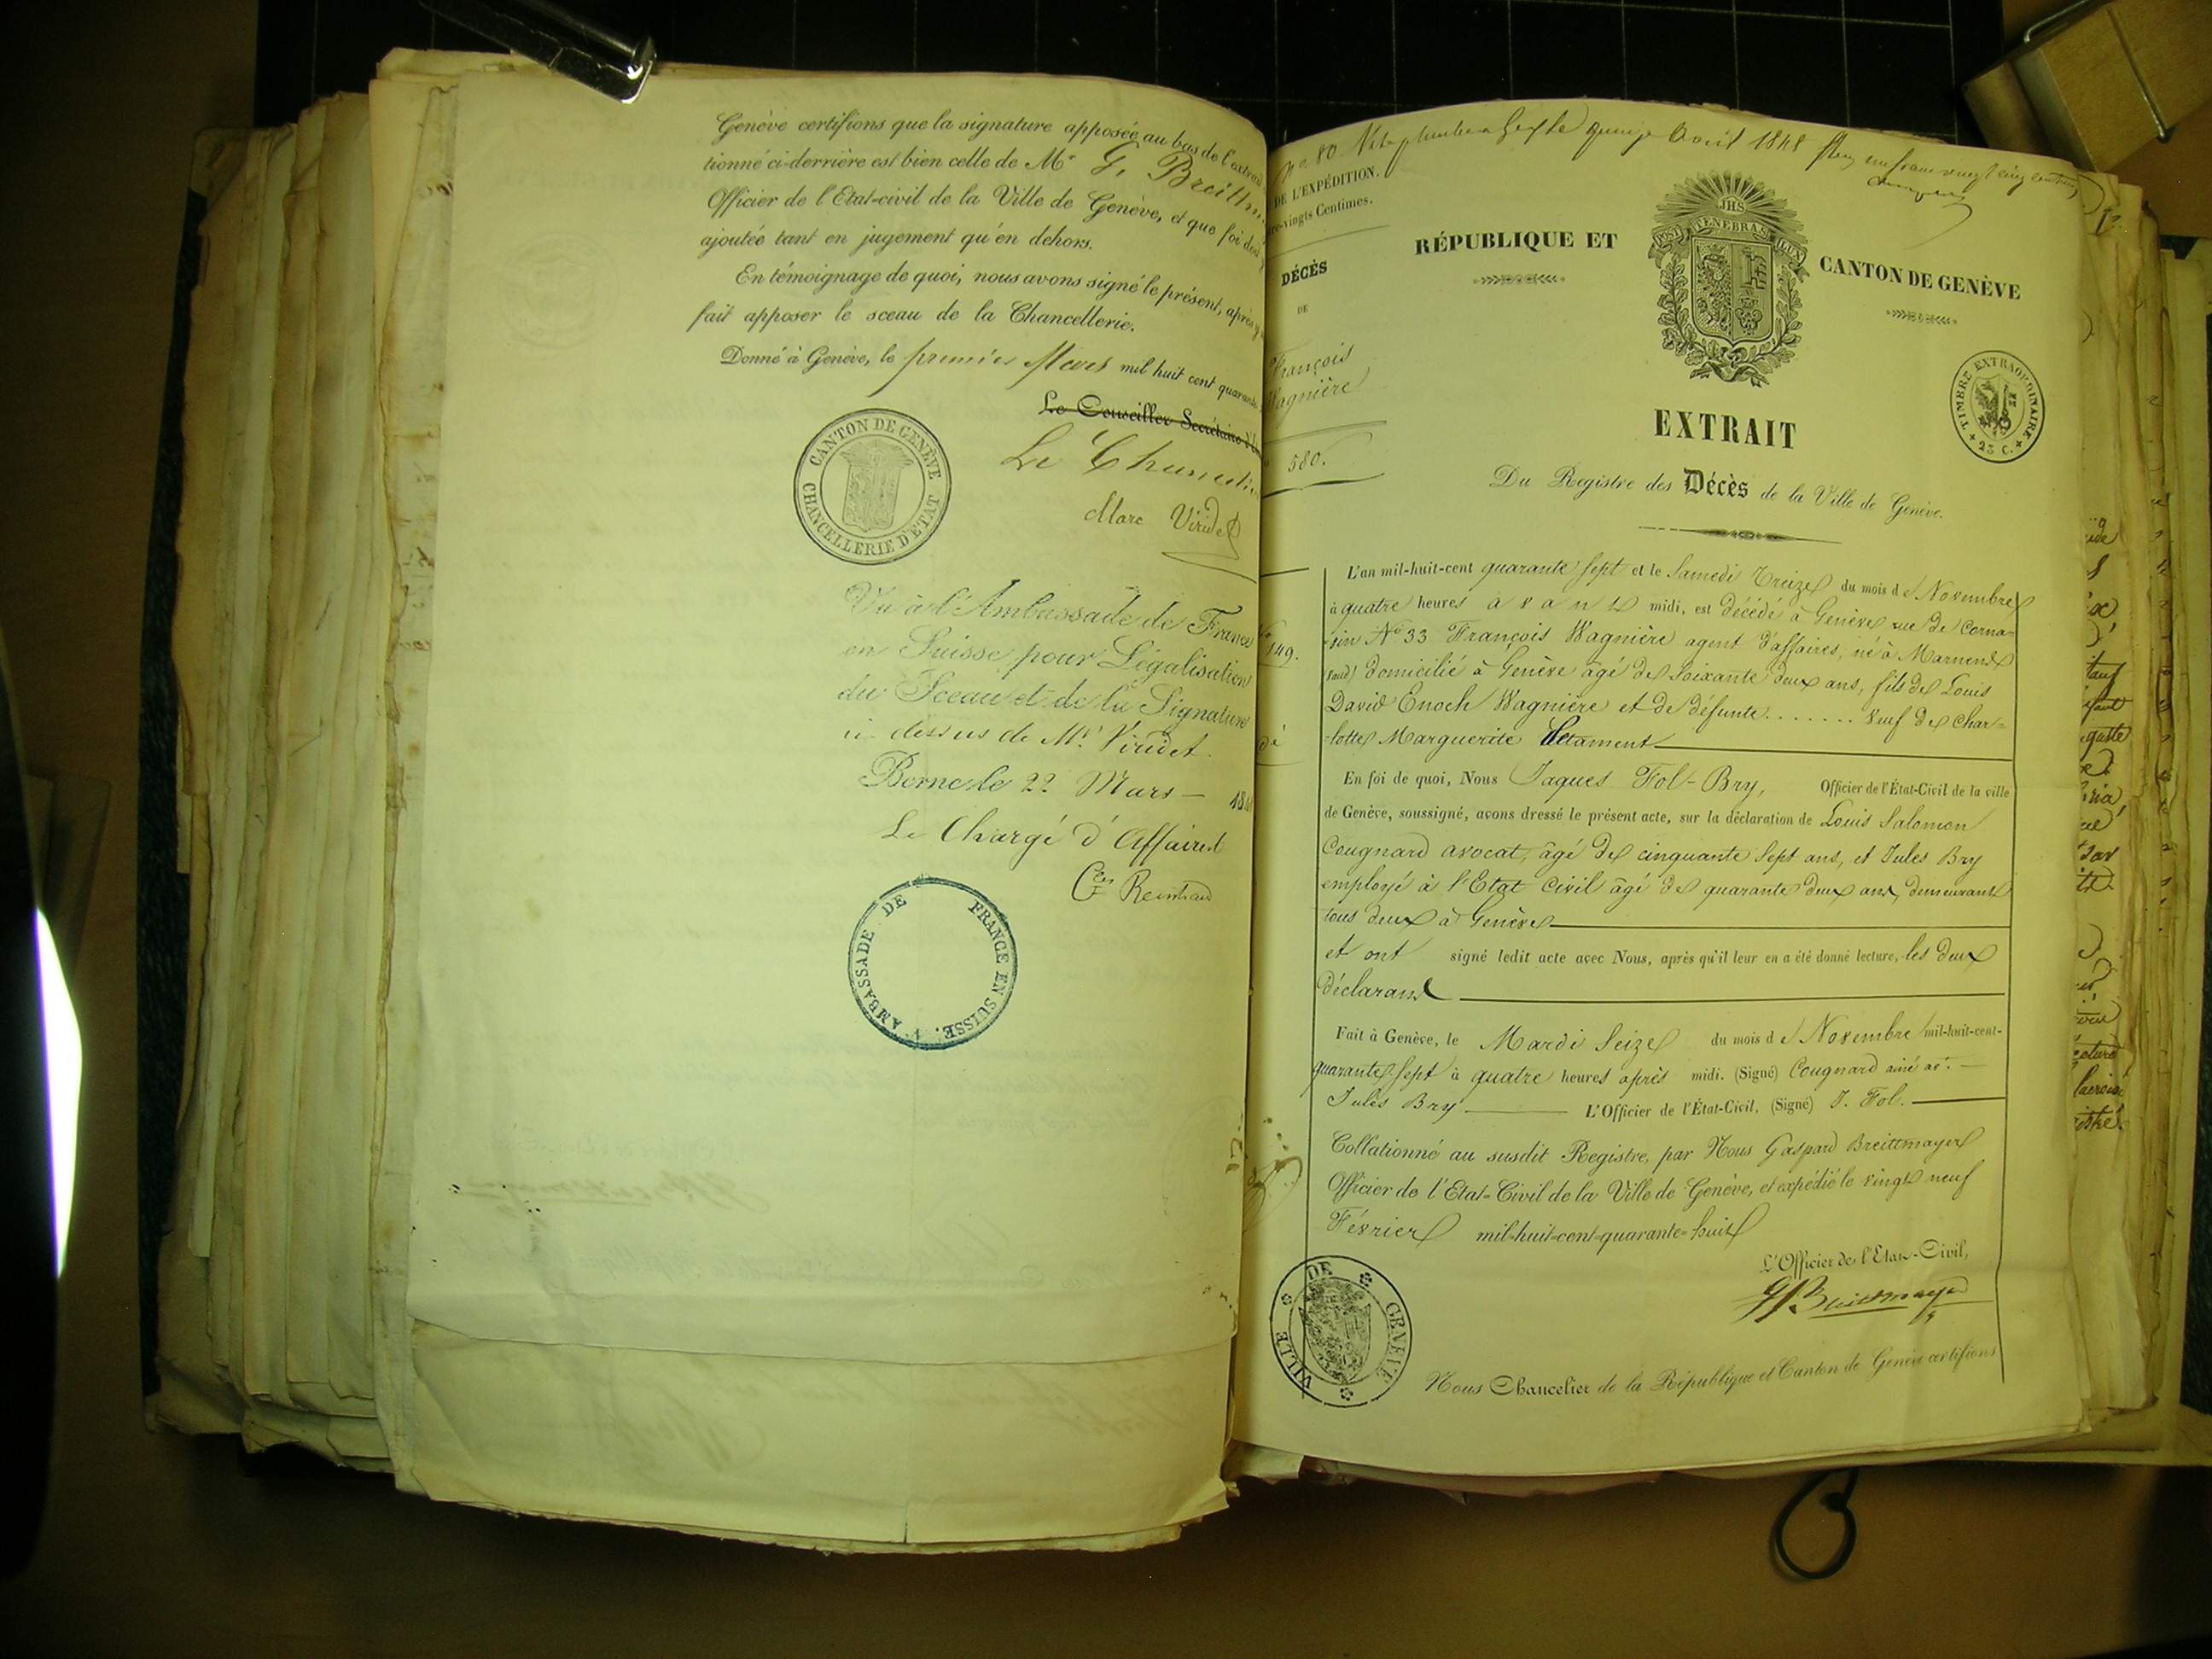 Genève certifions que la signature apposée au bas de l'extrait
tionné ci-derrière est bien celle de Mr G. Breittm
Officier de l'Etat-civil de la Ville de Genève, et que foi doit
ajoutée tant en jugement qu'en dehors.
En témoignage de quoi, nous avons signé le présent, après y
fait apposer le sceau de la Chancellerie.
Donné à Genève, le premier Mars mil huit cent quarante
Le Conseiller Secrétaire d'
Le Chancelier
Marc Viridet
CANTON DE GENÈVE
CHANCELLERIE D'ETAT
Vu à l'Ambassade de France
en Suisse, pour Légalisation
du Sceau et de la Signature
ci-dessus de Mr. Viridet.
Berne le 22 Mars - 184
Le Chargé d'Affaires
Cte Reinhard
AMBASSADE DE FRANCE EN SUISSE.
quinze Avril 1848
DE L'EXPÉDITION.
re-vingts Centimes.
DÉCÈS
DE
François
Wagnière
580.
No
149.
RÉPUBLIQUE ET
CANTON DE GENÈVE
JHS
POST TENEBRAS LUX
TIMBRE EXTRAORDINAIRE
25 C.
EXTRAIT
Du Registre des Décès de la Ville de Genève.
L'an mil-huit-cent quarante sept et le Samedi Treize du mois de Novembre
à quatre heures avant midi, est décédé à Genève rue de Corna-
vin No 33 François Wagnière agent d'affaires, né à Marnens
(Vaud) domicilié à Genève âgé de soixante deux ans, fils de Louis
David Enoch Wagnière et de défunte ....... Veuf de Char-
-lotte Marguerite
En foi de quoi, Nous Jaques Fol-Bry, Officier de l'État-Civil de la ville
de Genève, soussigné, avons dressé le présent acte, sur la déclaration de Louis Salomon
Cougnard avocat, âgé de cinquante sept ans, et Jules Bry
employé à l'Etat Civil âgé de quarante deux ans, demeurant
tous deux à Genève
et ont signé ledit acte avec Nous, après qu'il leur en a été donné lecture, les deux
déclarans
Fait à Genève, le Mardi Seize du mois de Novembre mil-huit-cent-
quarante sept à quatre heures après midi. (Signé) Cougnard aîné av.
Jules Bry L'Officier de l'État-Civil, (Signé) J. Fol.
Collationné au susdit Registre, par Nous Gaspard Breittmayer
Officier de l'Etat-Civil de la Ville de Genève, et expédié le vingt neuf
Février mil-huit-cent-quarante-huit
L'Officier de l'Etat-Civil,
G Breittmayer
VILLE DE GENEVE
Nous Chancelier de la République et Canton de Genève certifions